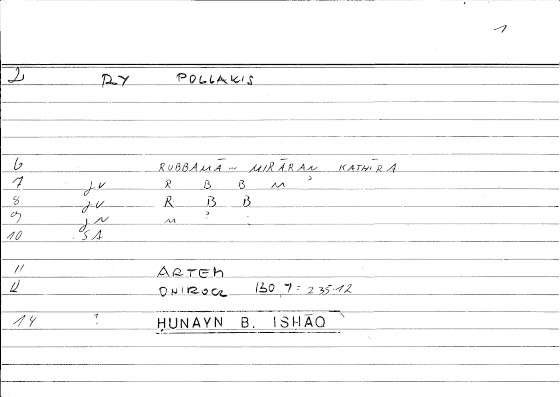 1
2 RY POLLAKIS
6 RUBBAMĀ – MIRĀRAN KATHĪRA
7 jv R B B M ʾ
8 jv R B B
9 jN M ʾ :
10 SA
11 ARTEM
12 ONIROCR 130,7 = 235.12
14 ? ḤUNAYN B. ISḤĀQ